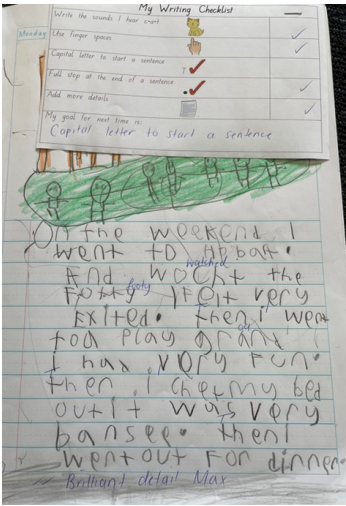 My Writing Checklist
Write the sounds I hear
Monday
Use finger spaces
Capital letter to start a sentence
Full stop at the end of a sentence
Add more details
My goal for next time is:
Capital letter to start a sentence
On the weekend I
went to Hobart.
watched
And wocht the
footy
Fotty I Felt very
Exited. then i went
too Play grand
I had very Fun.
then I chet my bed
out it was very
bansee. then i
went out For dinner.
Brilliant detail Max